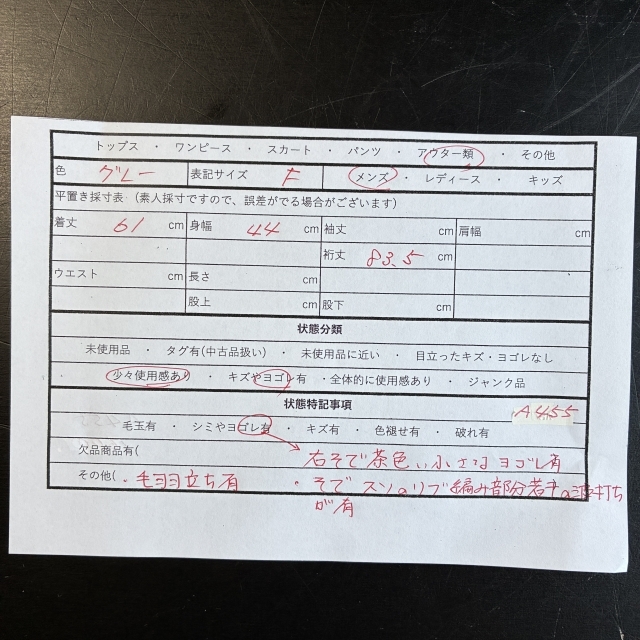 トップス ・ ワンピース ・ スカート ・ パンツ ・ アウター類 ・ その他
色 グレー 表記サイズ F メンズ ・ レディース ・ キッズ
平置き採寸表 (素人採寸ですので、誤差がでる場合がございます)
着丈 61 cm 身幅 44 cm 袖丈 cm 肩幅 cm
裄丈 83.5 cm
ウエスト cm 長さ cm
股上 cm 股下 cm
状態分類
未使用品 ・ タグ有(中古品扱い) ・ 未使用品に近い ・ 目立ったキズ・ヨゴレなし
少々使用感あり ・ キズやヨゴレ有 ・全体的に使用感あり ・ ジャンク品
状態特記事項
A455
毛玉有 ・ シミやヨゴレ有 ・ キズ有 ・ 色褪せ有 ・ 破れ有
欠品商品有( 右そで茶色い小さなヨゴレ有
その他( ・毛羽立ち有 ・そでスソのリブ編み部分若干の波打ち
が有